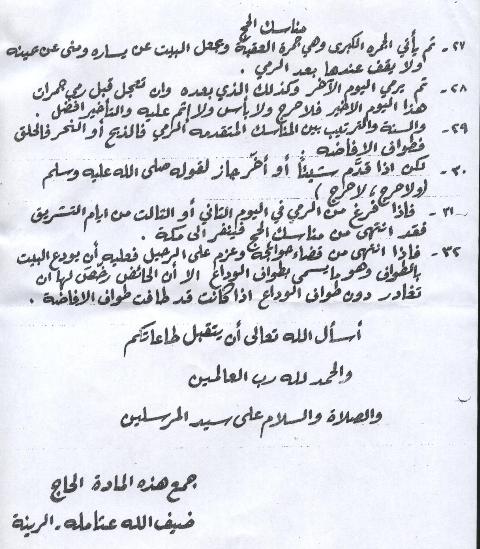 مناسك الحج
٢٧- ثم يأتي الجمرة الكبرى وهي جمرة العقبة ويجعل البيت عن يساره ومنى عن يمينه
ولا يقف عندها بعد الرمي .
٢٨- ثم يرمي اليوم الآخر وكذلك الذي بعده وان تعجل قبل رمي جمرات
هذا اليوم الاخير فلا حرج ولا بأس ولا إثم عليه والتأخير افضل .
٢٩- والسنة والترتيب بين المناسك المتقدمه الرمي فالذبح أو النحر فالحلق
فطواف الافاضه .
٣٠- لكن اذا قدَّم شيئاً أو أخَّر جاز لقوله صلى الله عليه وسلم
(ولا حرج ، لا حرج )
٣١- فاذا فرغ من الرمي في اليوم الثاني أو الثالث من ايام التشريق
فقد انتهى من مناسك الحج فينفر الى مكة .
٣٢- فاذا انتهى من قضاء حوائجه وعزم على الرحيل فعليه أن يودع البيت
بالطواف وهو ما يسمى بطواف الوداع الا أن الحائض رخص لها ان
تغادر دون طواف الوداع اذا كانت قد طافت طواف الافاضة .
أسأل الله تعالى أن يتقبل طاعاتكم
والحمد لله رب العالمين
والصلاة والسلام على سيد المرسلين
جمع هذه المادة الحاج
ضيف الله عثامله - الرينة